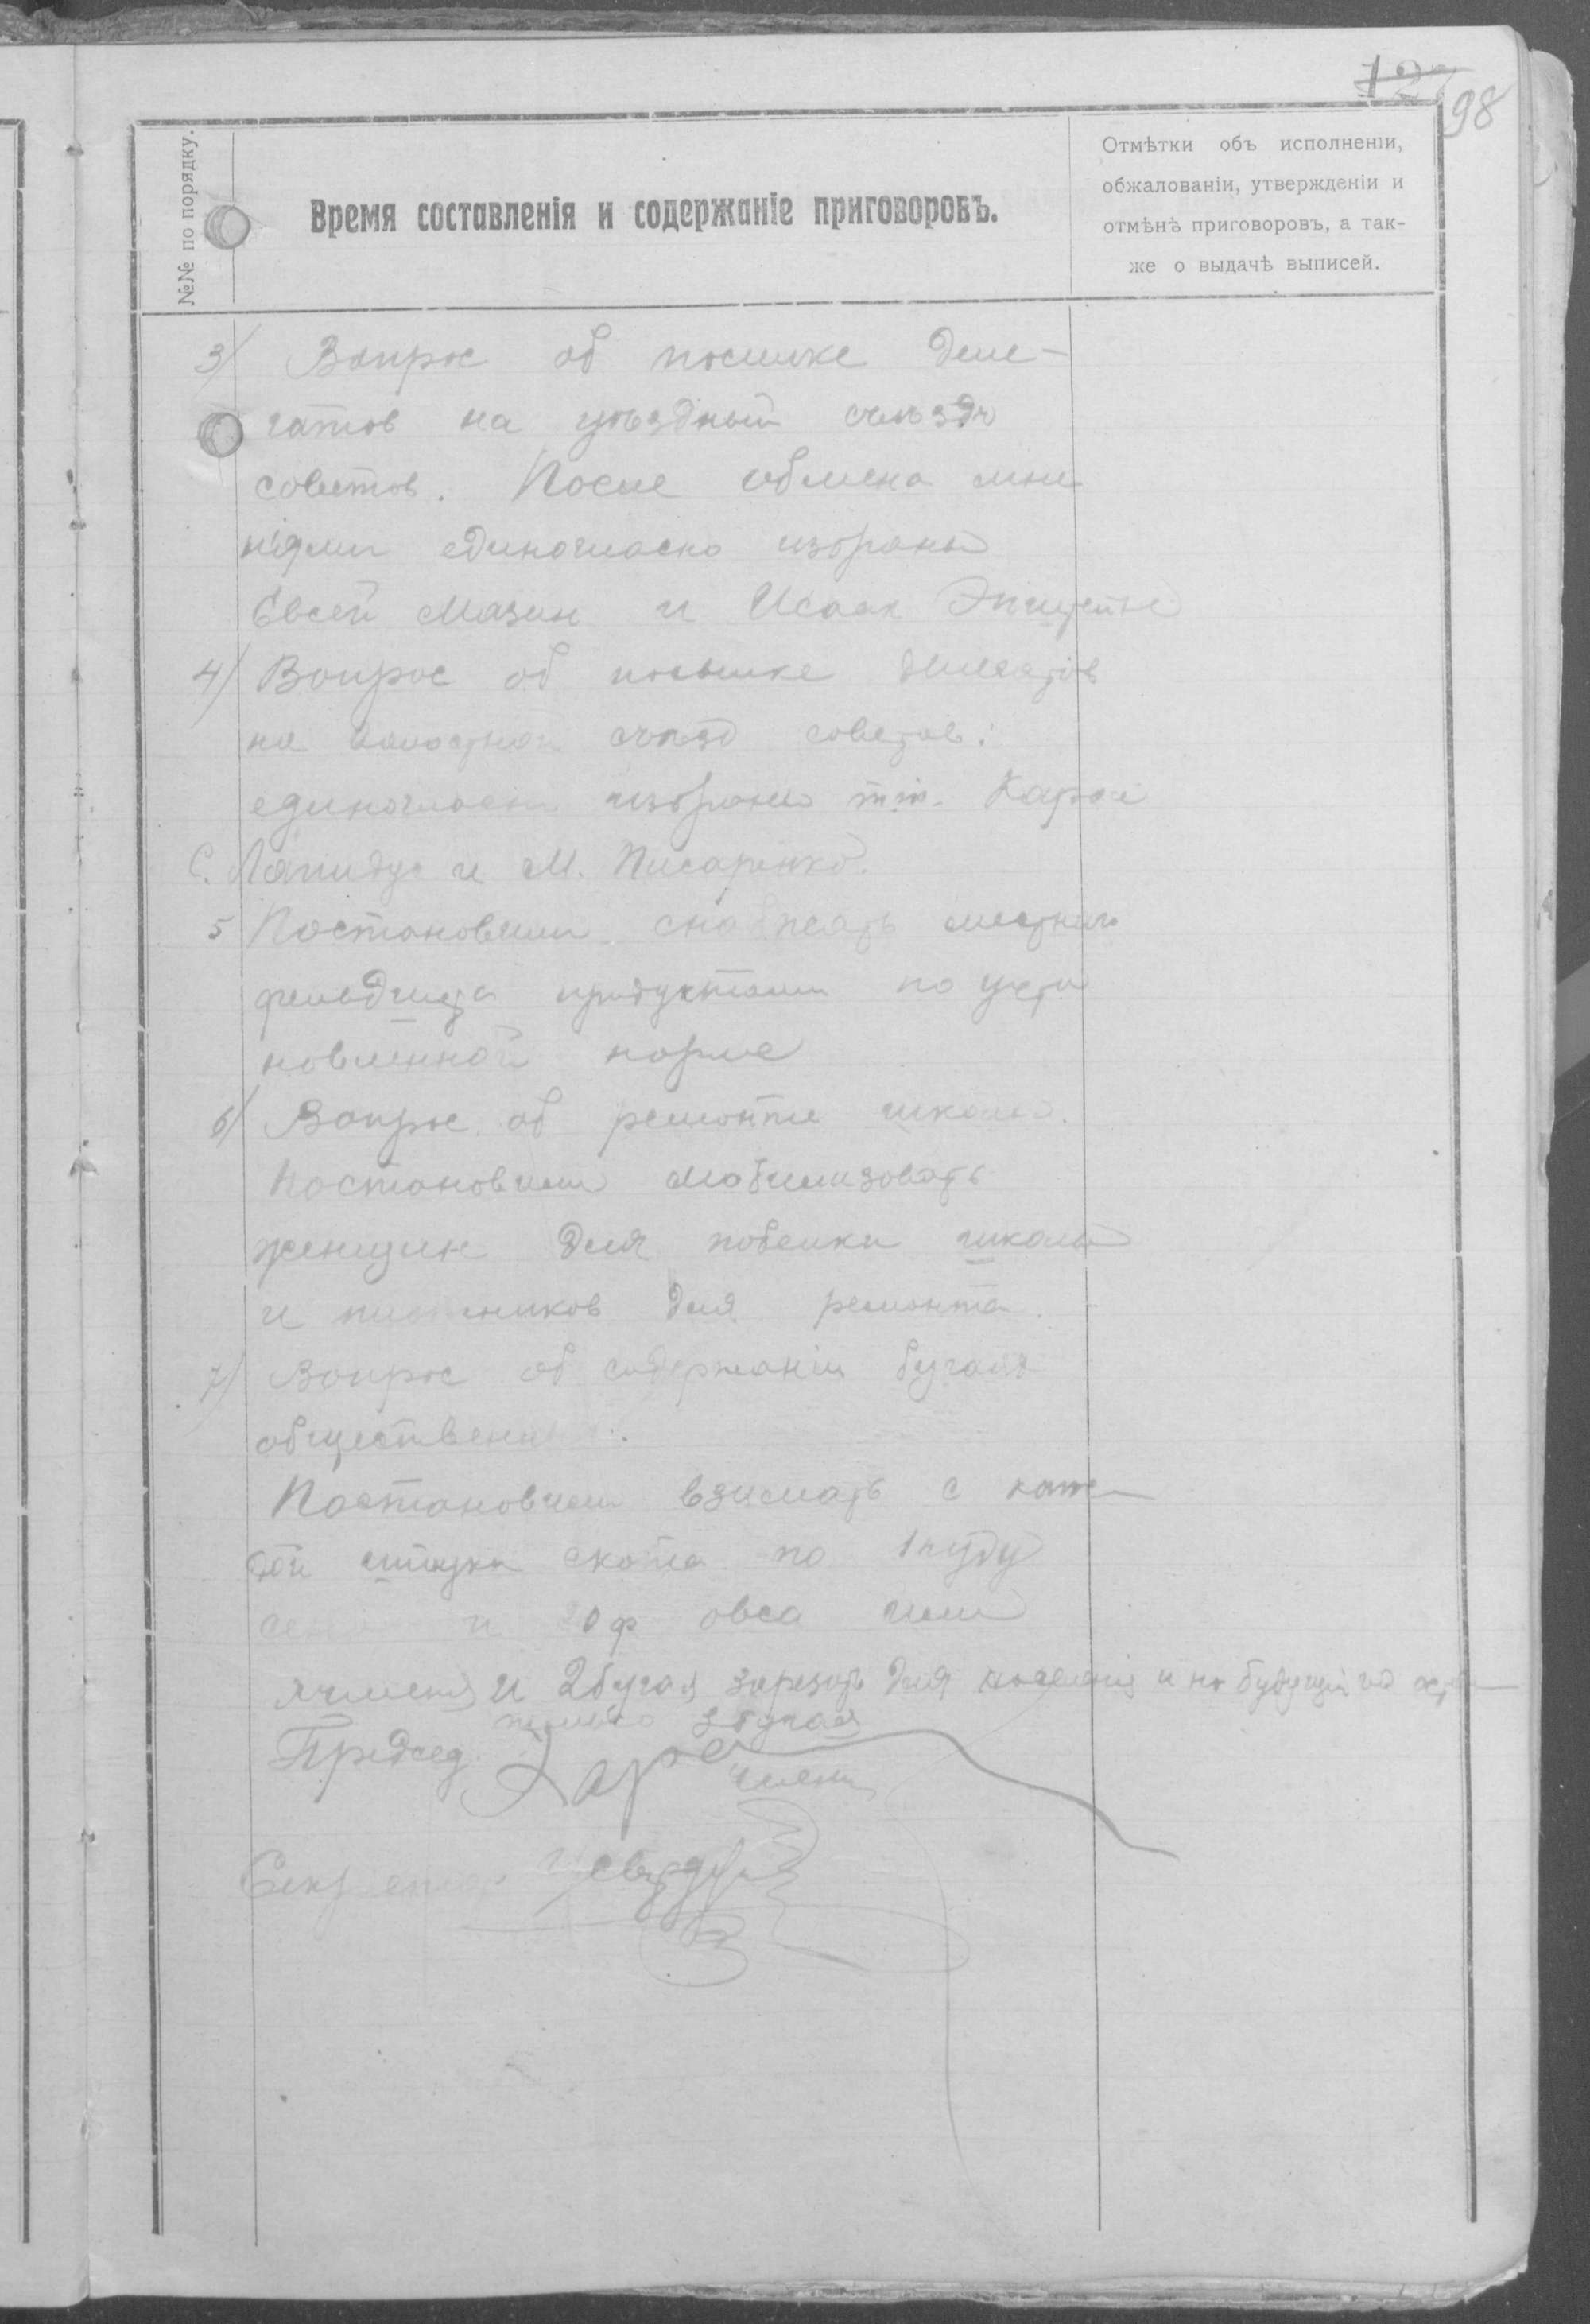 127
98
№№ по порядку.
Время составленія и содержаніе приговоровъ.
Отмѣтки объ исполненіи,
обжалованіи, утвержденіи и
отмѣнѣ приговоровъ, а так-
же о выдачѣ выписей.
3/ Вопрос об посылке деле-
гатов на уъздный съъздъ
советов. После обмена мне
ніями единогласно избраны
Евсей Мазин и Исаак
4/ Вопрос об посылке делегатов
на волостной съезд советов:
единогласно избраны тт.
С. Лапидус и М. Писаренко.
5 Постановили снабжать местного
продуктами по уста
новленной норме
6/ Вопрос об ремонте школы.
Постановили мобилизовать
женщин для побелки школы
и плотников для ремонта.
7/ Вопрос об содержаніи бугаев
обществени
Постановили взимать с каж
дой штуки скота по 1 пуду
сена и 20 ф овса или
ячменя и 2 бугая зарезать для и на будущій год
только 3 бугая
Председ.
члени
Секретарь